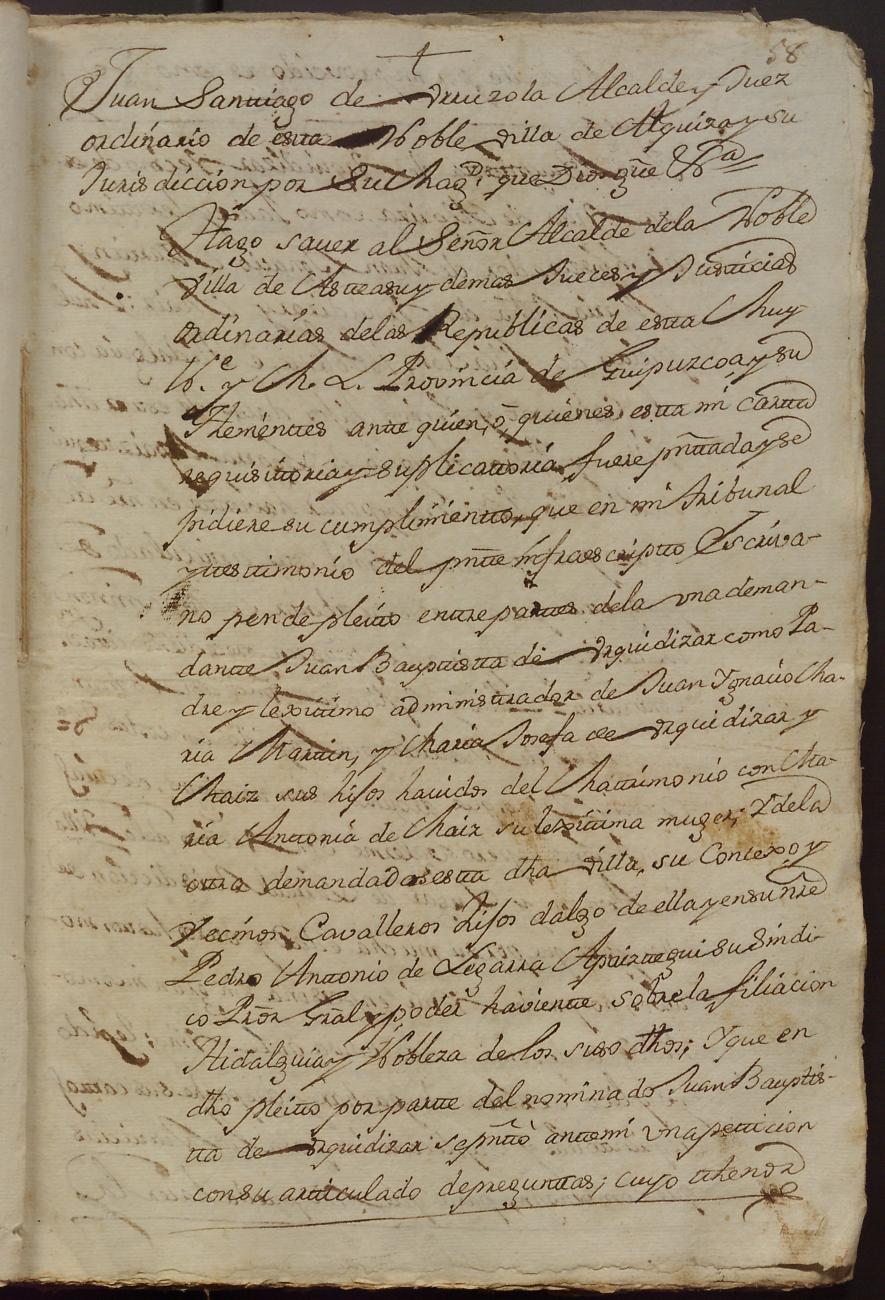 58
Juan Santiago de Urruzola Alcalde y Juez
ordinario de esta Noble villa de Alquiza y su
Jurisdiccion por Su Mag.d que Dios gue &ra
Hago saver al Señor Alcalde dela Noble
villa de Asteasu y demas Jueces y Justicias
ordinarias delas Republicas de esta Muy
N.e y M. L. Provincia de Guipuzcoa y su
thenientes ante quien, ò, quienes esta mi carta
requisitoria y suplicattoria fuere pnttada y se
pidiere su cumplimientto, que en mi Tribunal
y testimonio del pntte infraescriptto Escriva-
no pende pleitto entre partes dela una deman-
dante Juan Bauptistta de Urquidizar como Pa-
dre y lexittimo administrador de Juan Ygnacio Ma-
ria Martin, y Maria Josefa de Urquidizar y
Maiz sus hijos havidos del Mattrimonio con Ma-
ria Antonia de Maiz su lexittima muger; Y dela
otra demandados esta dha villa, su Concexo y
vecinos Cavalleros hijos dalgo de ella y en su nre
Pedro Anttonio de Legarra Apaizttegui su Sindi-
co Pror Gral y poder havientte sobre la filiacion
Hidalguia y Nobleza de los suso dhos; Y que en
dho pleitto por partte del nominado Juan Bauptis-
tta de Urquidizar se pnttò antemi una petticion
con su articulado de preguntas; cuyo thenor